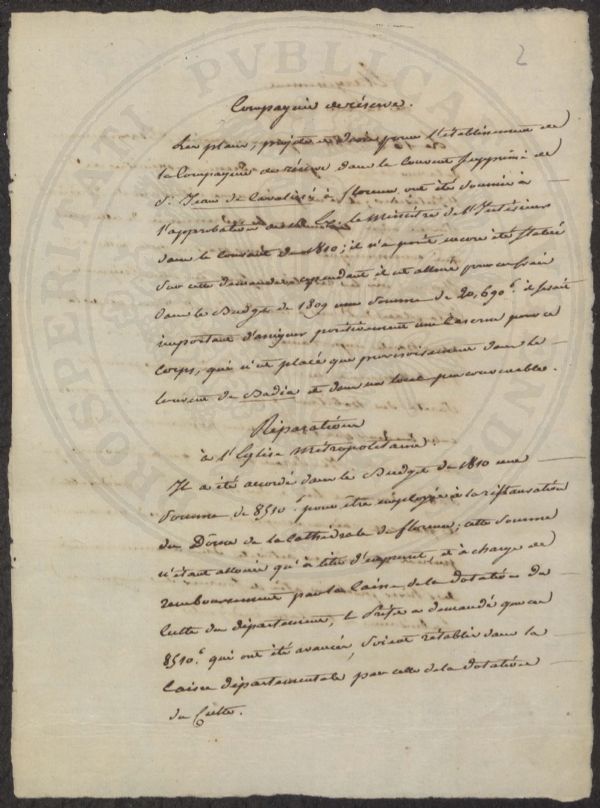 2
Compagnie de réserve.
Les plans, projets et devis pour l'établissement de
la Compagnie de réserve dans le Couvent supprimé de
S. Jean de Cavalieri à florence ont été soumis à
l'approbation de S. Ex. le Ministre de l'Intérieur
dans le courant de 1810; il n'a point encore été statué
sur cette demande: cependant il est alloué pour ces frais
dans le Budget de 1809 une Somme de 20,690.f il serait
important d'assigner positivement une Caserne pour ce
corps, qui n'est placé que provisoirement dans le
Couvent de Badia et dans un local peu convenable.
Réparations
à l'Eglise Métropolitaine.
Il a été accordé dans le Budget de 1810 une
Somme de 8510.f pour être employée à la restauration
du Dôme de la Cathédrale de florence; cette Somme
n'étant allouée qu'à titre d'emprunt, et à charge de
remboursement par la Caisse de la dotation du
Culte du département, le Préfet a demandé que ces
8510.f qui ont été avancés, soient rétablis dans la
Caisse départementale par celle de la dotation
du Culte.
PVBLICAE